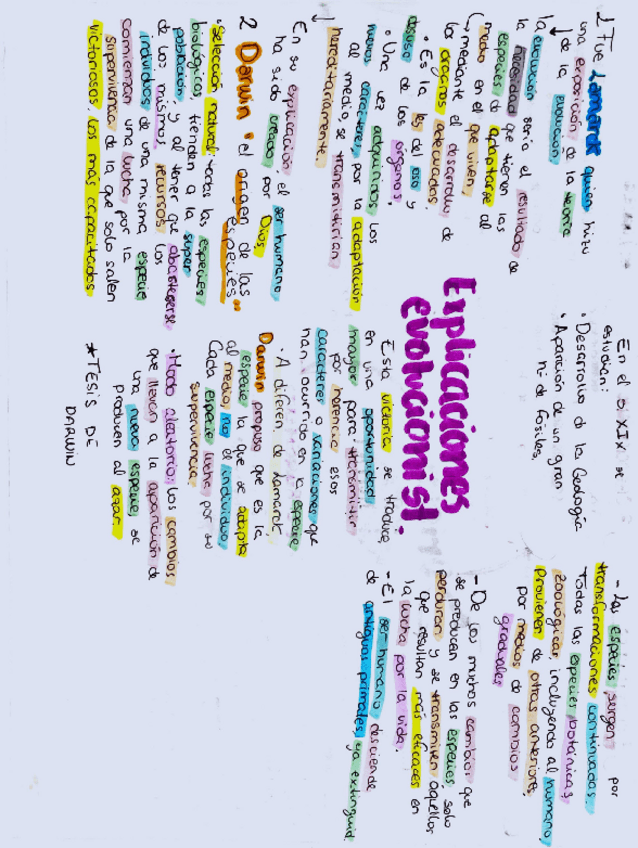 Explicaciones
evolucionist.
En el s XIX se
estudian:
• Desarrollo de la Geología
• Aparición de un gran
nº de fósiles.
1 Fue Lamarck quien hizo
una exposición de la teoría
↓ de la evolución.
la evolución sería el resultado de
la necesidad que tienen las
especies de adaptarse al
medio en el que viven,
mediante el desarrollo de
los órganos adecuados.
• Es la ley del uso y
desuso de los órganos.
• Una vez adquiridos los
nuevos caracteres, por la adaptación
al medio, se transmitirían
hereditariamente.
↓
En su explicación, el ser humano
ha sido creado por Dios
2 Darwin "el origen de las
especies"
• Selección natural: todas las especies
biológicas, tienden a la super
población y al tener que abastecerse
de los mismos recursos los
individuos de una misma especie
comienzan una lucha por la
supervivencia de la que solo salen
victoriosos los más capacitados
Esta victoria se traduce
en una oportunidad
mayor para transmitir
por herencia esos
caracteres o variaciones que
han ocurrido en la especie
• A diferen de Lamarck
Darwin propuso que es la
especie la que se adapta
al medio, no el individuo
Cada especie lucha por su
supervivencia.
• Modo aleatorio: los cambios
que llevan a la aparición de
una nueva especie se
producen al azar.
* TESIS DE
DARWIN
- Las especies surgen por
transformaciones continuadas.
Todas las especies botánicas,
zoológicas, incluyendo al humano,
provienen de otras anteriores,
por medios de cambios
graduales
- De los muchos cambios que
se produzcan en las especies, solo
perduran y se transmiten aquellos
que resultan más eficaces en
la lucha por la vida.
- El ser humano desciende
de antiguos primates ya extinguid.